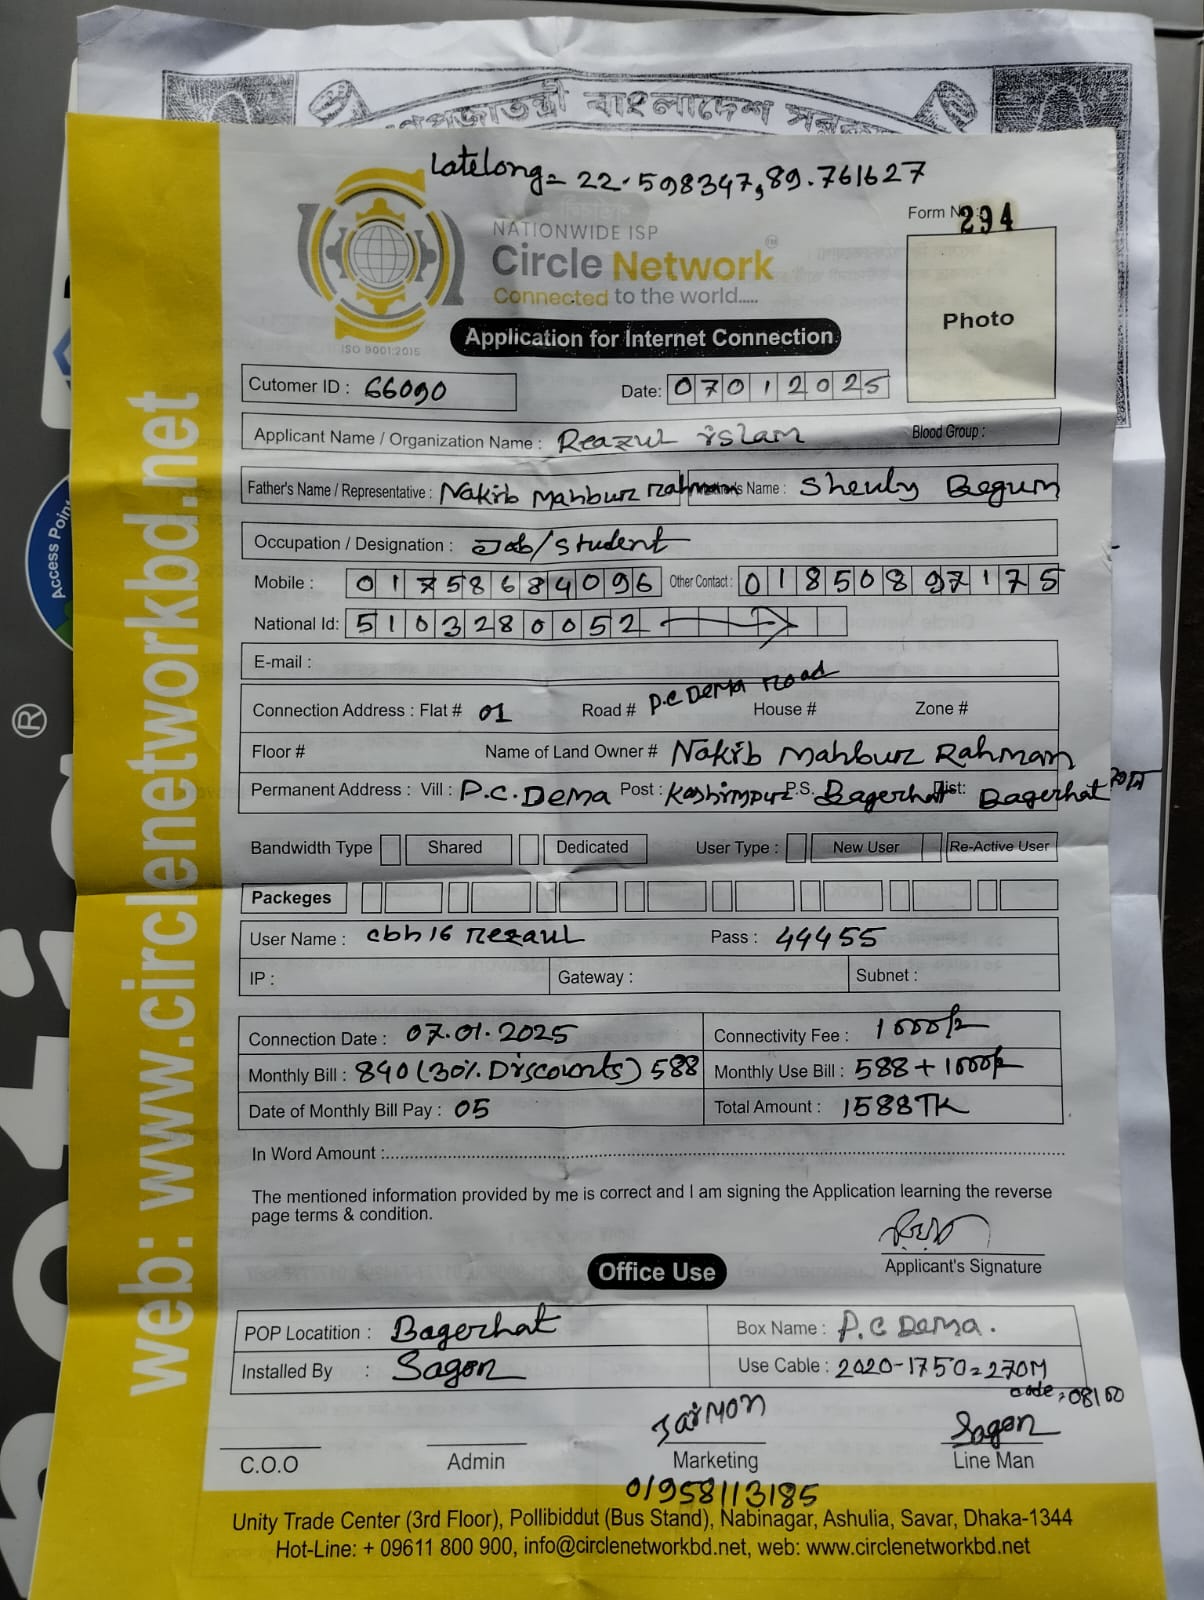 গণপ্রজাতন্ত্রী বাংলাদেশ সরকার
Latelong = 22.598347, 89.761627
Form No: 294
NATIONWIDE ISP
Circle Network™
Connected to the world.....
ISO 9001:2015
Photo
Application for Internet Connection
Cutomer ID : 66090 Date: 07012025
Applicant Name / Organization Name : Reazul islam Blood Group :
Father's Name / Representative : Nakib Mahbur Rahman Mother's Name : Shenly Begum
Occupation / Designation : Job/Student
Mobile : 01758684096 Other Contact : 01850897175
National Id: 5103280052
E-mail :
Connection Address : Flat # 01 Road # P.C Dema Road House # Zone #
Floor # Name of Land Owner # Nakib Mahbur Rahman
Permanent Address : Vill : P.C. Dema Post : Kashimpur P.S. Bagerhat Dist: Bagerhat
Bandwidth Type Shared Dedicated User Type : New User Re-Active User
Packeges
User Name : cbh16 rezaul Pass : 44455
IP : Gateway : Subnet :
Connection Date : 07.01.2025 Connectivity Fee : 1000/=
Monthly Bill : 840 (30% Discounts) 588 Monthly Use Bill : 588 + 1000/=
Date of Monthly Bill Pay : 05 Total Amount : 1588TK
In Word Amount :
The mentioned information provided by me is correct and I am signing the Application learning the reverse
page terms & condition.
Applicant's Signature
Office Use
POP Locatition : Bagerhat Box Name : P.C Dema.
Installed By : Sagor Use Cable : 2020-1750=270M
code, 08100
Jaimon Sagor
C.O.O Admin Marketing Line Man
01958113185
Unity Trade Center (3rd Floor), Pollibiddut (Bus Stand), Nabinagar, Ashulia, Savar, Dhaka-1344
Hot-Line: + 09611 800 900, info@circlenetworkbd.net, web: www.circlenetworkbd.net
web: www.circlenetworkbd.net
Access Point
®